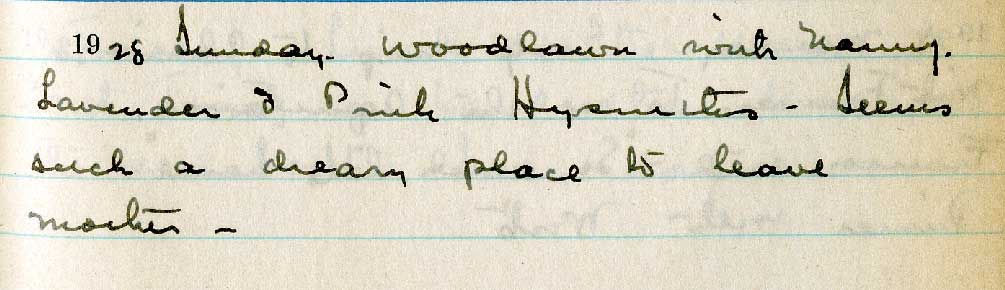 1928 Sunday. Woodlawn with Nanny.
Lavender & Pink Hyacinths - Seems
such a dreary place to leave
mother -